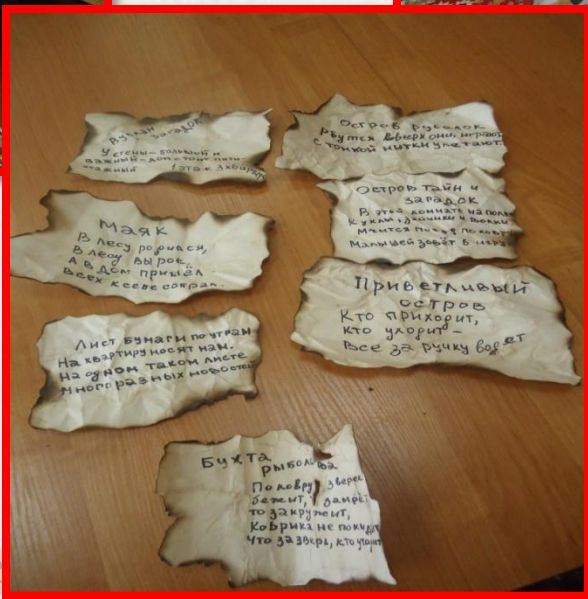 Вулкан
загадок
У стены-большой и
важный-дом стоит пяти-
этажный (этаж 3 квартиры
Маяк
В лесу родился,
В лесу вырос,
А в дом пришёл
Всех к себе собрал.
Лист бумаги по утрам
На квартиру носят нам.
На одном таком листе
Много разных новостей
Остров русалок
Рвутся вверх они, играют
С тонкой нитки улетают.
Остров тайн и
загадок
В этой комнате на полке
Куклы, зайчики и волки.
Мчится поезд по ковру
Малышей зовёт в игру.
Приветливый
остров
Кто приходит,
Кто уходит-
Все за ручку водят
Бухта
рыболова
По ковру зверек
бежит, замрёт
то закружит,
Коврика не покидает
Что за зверь, кто угадает